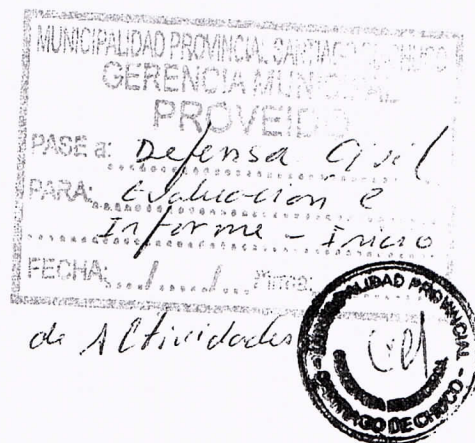 MUNICIPALIDAD PROVINCIAL SANTIAGO DE CHUCO
GERENCIA MUNICIPAL
PROVEIDO
PASE a: Defensa Civil
PARA: Evaluación e
Informe - Inicio
FECHA: / / Firma:
de Actividades
MUNICIPALIDAD PROVINCIAL
GERENCIA MUNICIPAL
SANTIAGO DE CHUCO